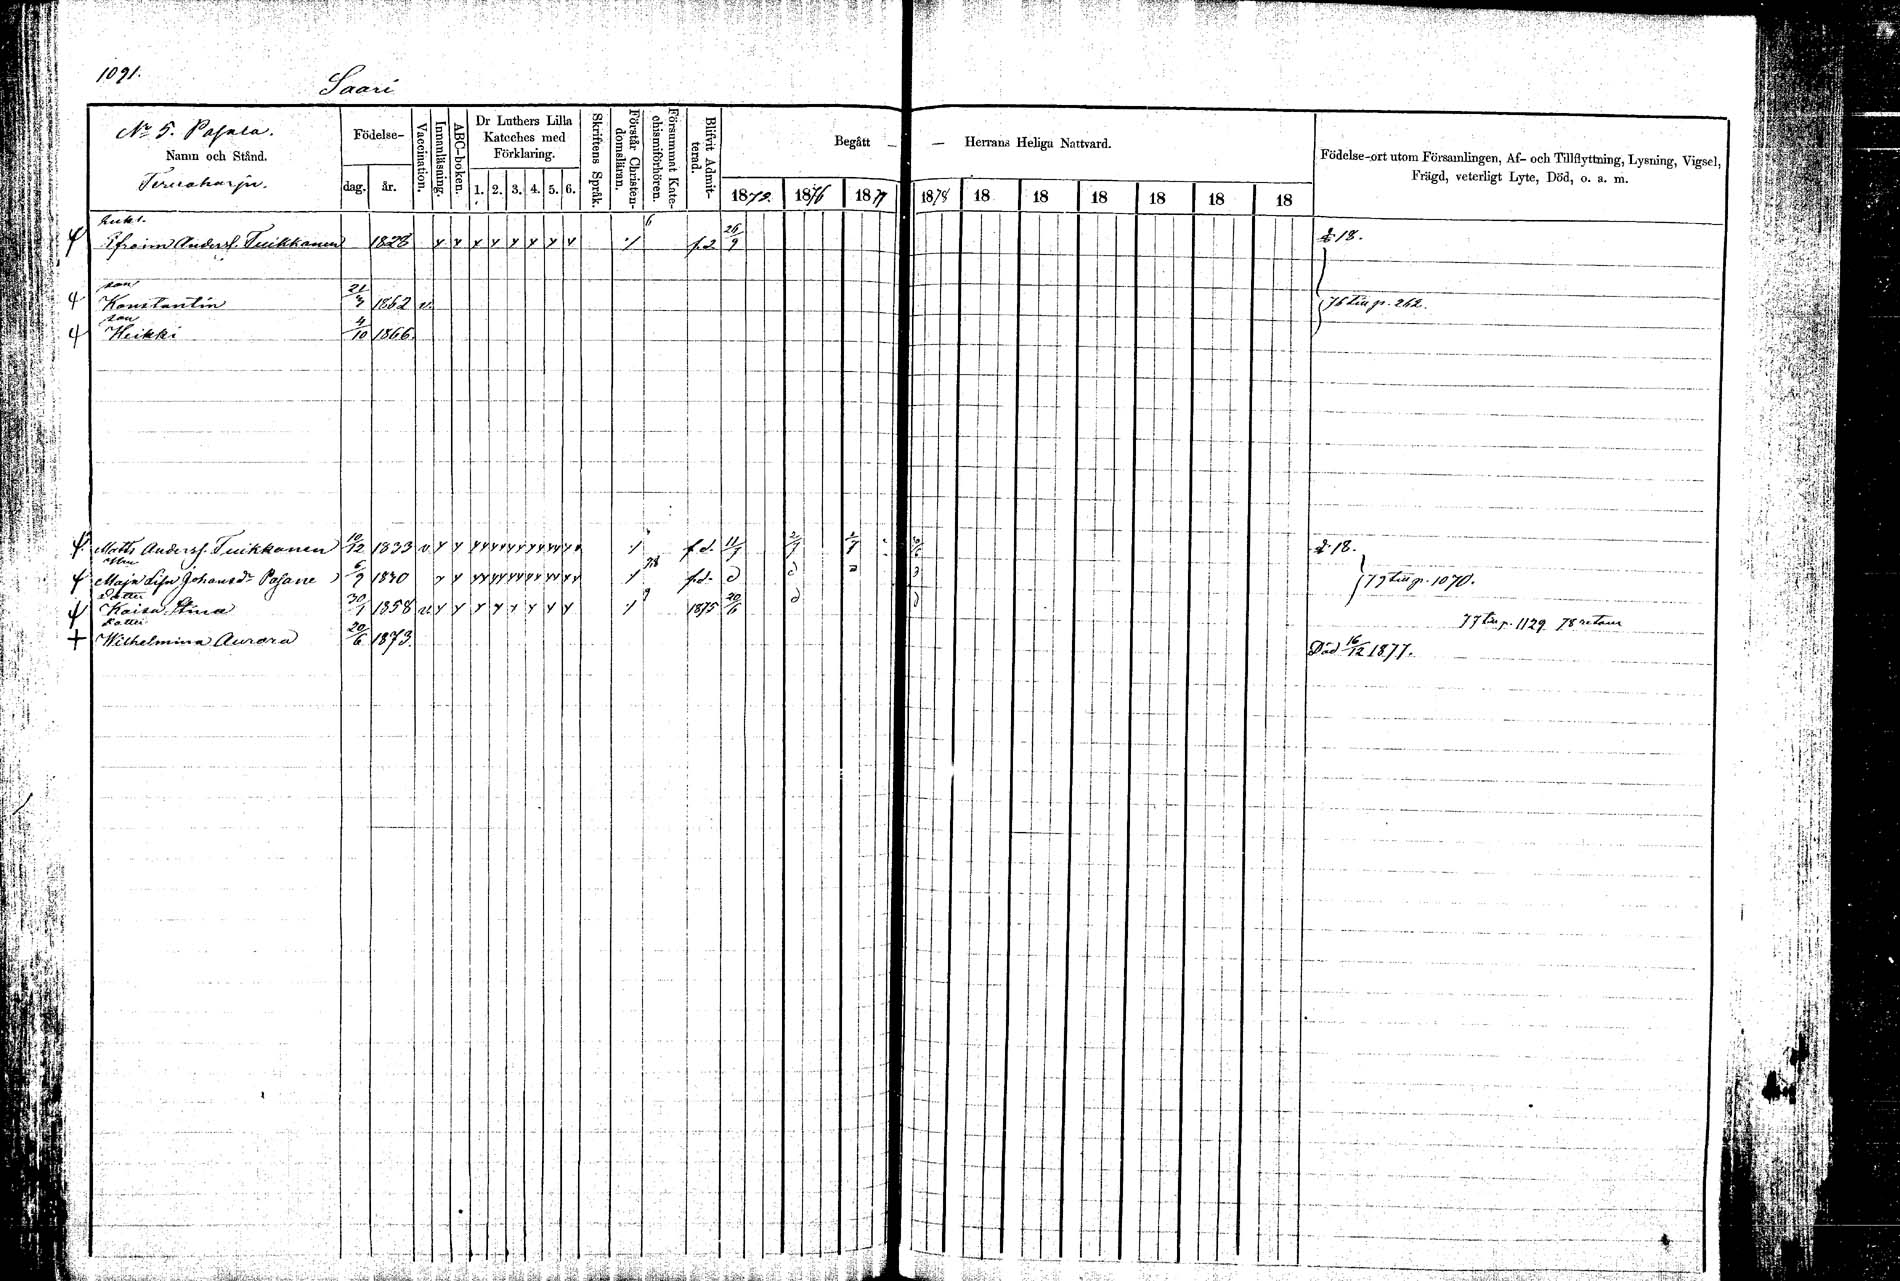 1091.
Saari
No 5. Pasala.
Namn och Stånd.
Födelse-
dag. år.
Vaccination.
Innanläsning.
ABC-boken.
Dr Luthers Lilla Kateches med Förklaring.
1. 2. 3. 4. 5. 6.
Skriftens Språk.
Förstår Christendomsläran.
Försummat Katechismiförhören.
Blifvit Admitterad.
Begått — — Herrans Heliga Nattvard.
1875. 1876 1877 1878 18 18 18 18 18 18
Födelse-ort utom Församlingen, Af- och Tillflyttning, Lysning, Vigsel,
Frägd, veterligt Lyte, Död, o. a. m.
Efraim Andersf. Tuikkanen 1828 26/9 18.
son
Konstantin 21/3 1862 v. 76 till p. 262.
son
Heikki 4/10 1866.
Matts Andersf. Tuikkanen 10/12 1833 v. f.d. 18.
Maja Lisa Johansdr Pasane 6/9 1830 f.d. 79 till p. 1070.
Dotter
Kaisa Stina 30/1 1858 v. 1875 20/6 77 till p. 1129 78 retour
Dotter
Wilhelmina Aurora 20/6 1873. Död 16/12 1877.